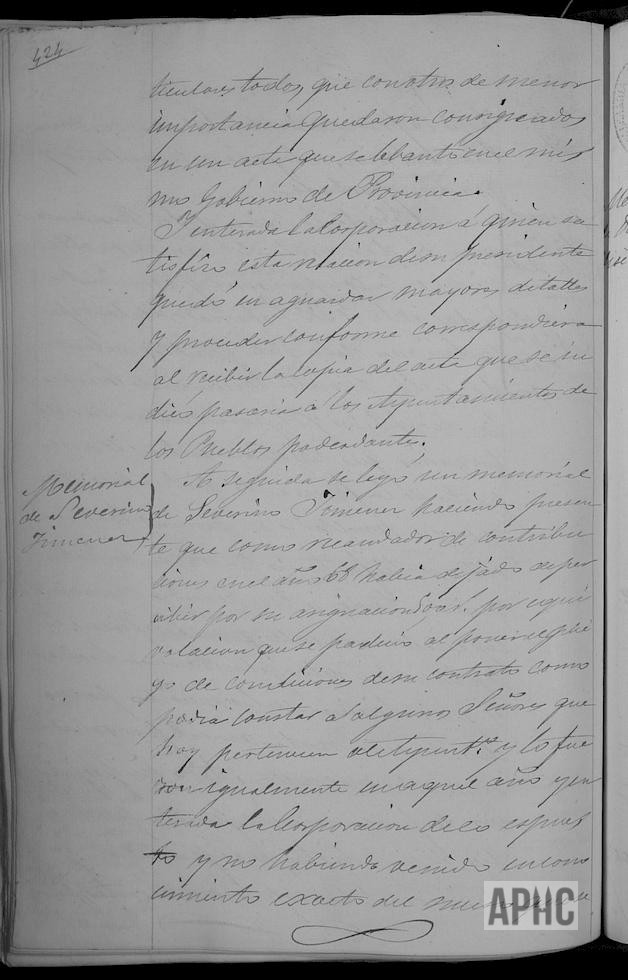 424
ticulares todos, que con otros de menor
importancia quedaron consignados
en un acta que se lebantó en el mis
mo Gobierno de Provincia.
Y enterada la Corporacion á quien sa
tisfizo esta relacion de su Presidente
quedó en aguardar mayores detalles
y proceder conforme correspondiera
al recibir la copia del acta que se in
dicó pasaria á los Ayuntamientos de
los Pueblos
Memorial
de Severino
Jimenez
A seguida se leyó un memorial
de Severino Jimenez haciendo presen
te que como recaudador de contribu
ciones en el año 68 habia dejado de per
cibir por su asignacion por equi
vocacion que se padeció al poner el plie
go de condiciones de su contrato como
podia constar a algunos Señores que
hoy pertenecen al Ayunt.to y lo fue
ron igualmente en aquel año y en
terada la Corporacion de lo espues
to y no habiendo venido en cono
cimiento exacto del
APHC